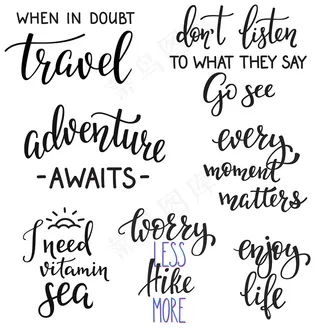 WHEN IN DOUBT
travel
don't listen
TO WHAT THEY SAY
Go see
adventure
-AWAITS-
every
moment
matters
I need
vitamin
sea
worry
LESS
Hike
MORE
enjoy
life